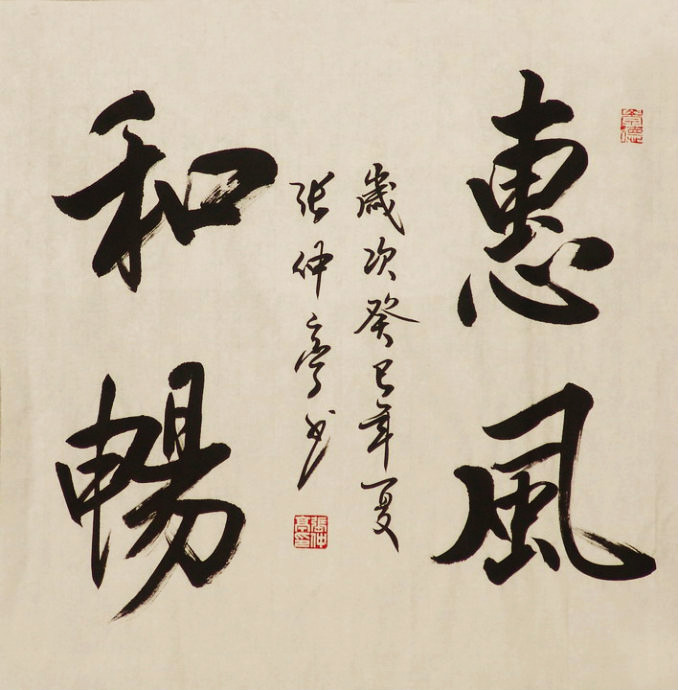 惠風
和暢
歲次癸巳年夏
张仲亭书
張仲亭印